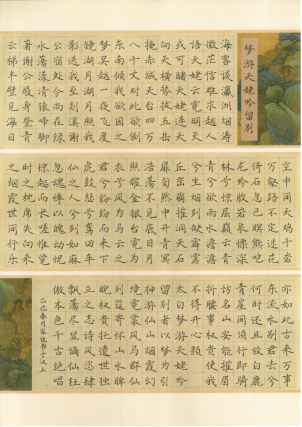 梦游天姥吟留别
海客谈瀛洲烟涛
微茫信难求越人
语天姥云霓明灭
或可睹天姥连天
向天横势拔五岳
掩赤城天台四万
八千丈对此欲倒
东南倾我欲因之
梦吴越一夜飞度
镜湖月湖月照我
影送我至剡溪谢
公宿处今尚在渌
水荡漾清猿啼脚
著谢公屐身登青
云梯半壁见海日
空中闻天鸡千岩
万壑路不定迷花
倚石忽已暝熊咆
龙吟殷岩泉慄深
林兮惊层巅云青
青兮欲雨水澹澹
兮生烟列缺霹雳
丘峦崩摧洞天石
扉訇然中开青冥
浩荡不见底日月
照耀金银台霓为
衣兮风为马云之
君兮纷纷而来下
虎鼓瑟兮鸾回车
仙之人兮列如麻
忽魂悸以魄动怳
惊起而长嗟惟觉
时之枕席失向来
之烟霞世间行乐
亦如此古来万事
东流水别君去兮
何时还且放白鹿
青崖间须行即骑
访名山安能摧眉
折腰事权贵使我
不得开心颜
太白梦游天姥吟
留别者以梦为引
神游仙山烟霞幻
境霓裳风马群仙
列筵寄怀山水睥
睨权贵抒遗世独
立之志诗风恣肆
飘荡尽显谪仙狂
傲本色千古绝唱
乙巳春月书于汉上